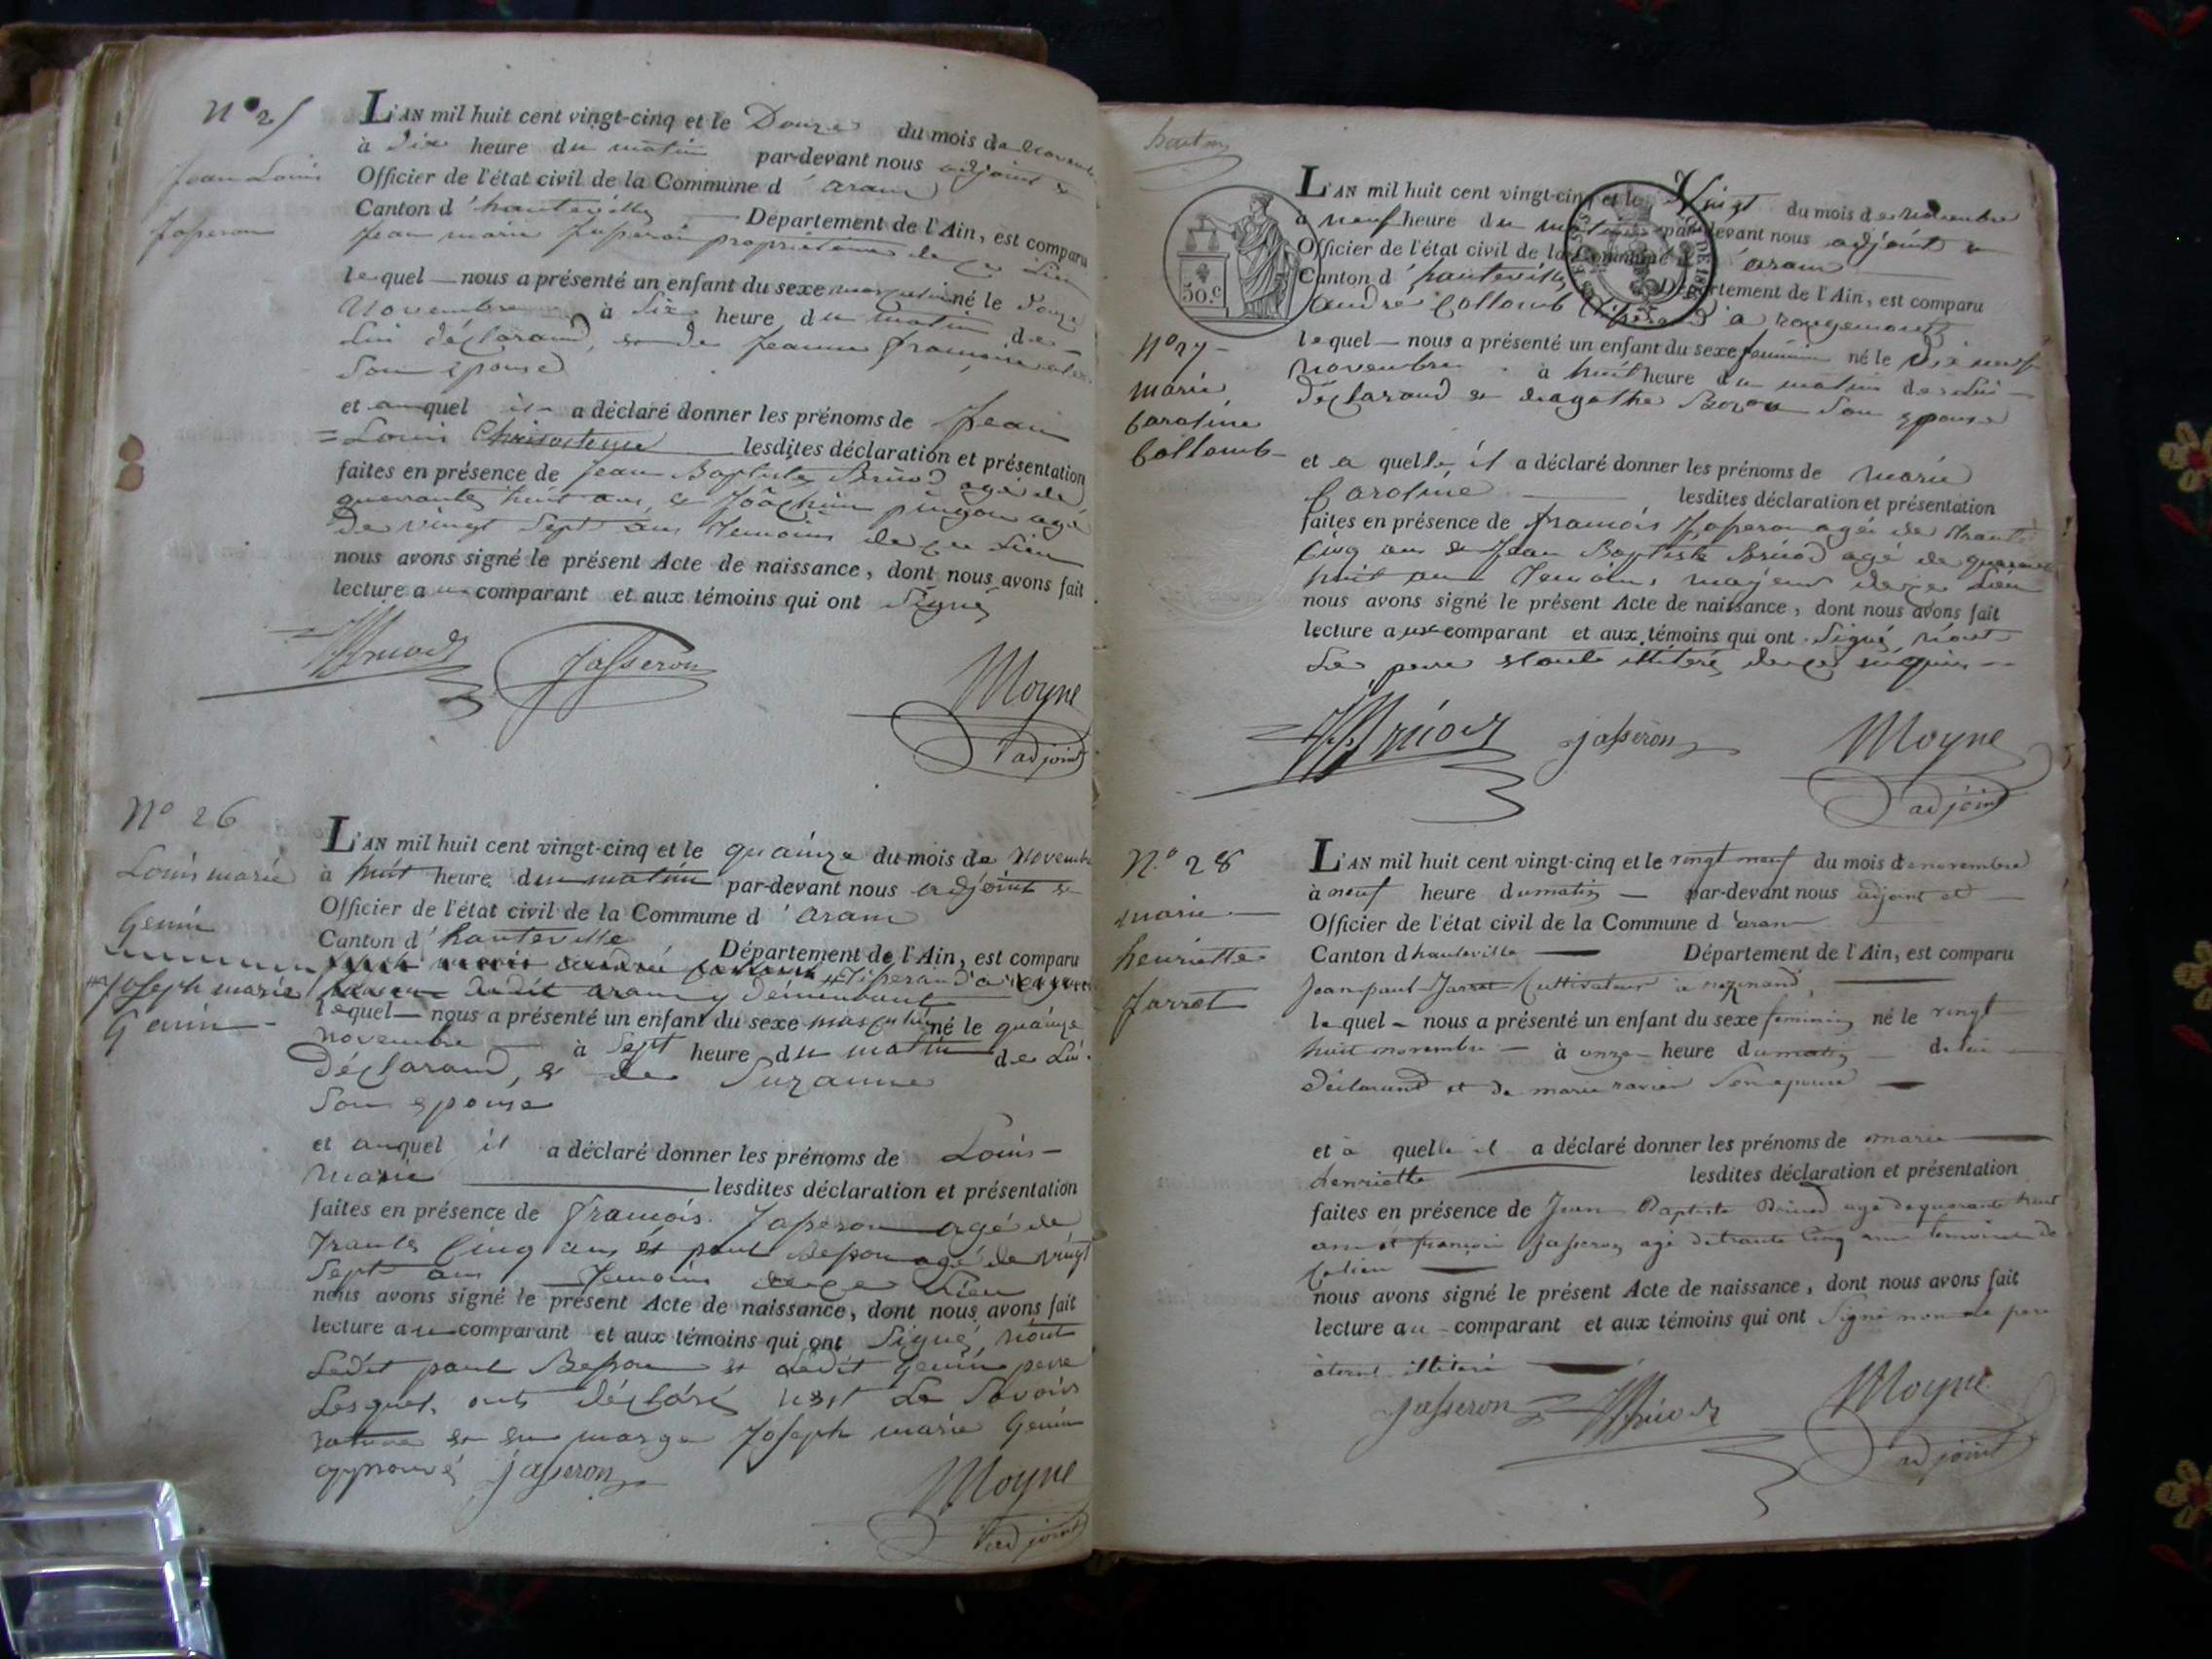 N° 25
Jean Louis
Jasseron
L'AN mil huit cent vingt-cinq et le Douze du mois de Novembre
à Dix heure du matin par-devant nous adjoint &
Officier de l'état civil de la Commune d'aranc
Canton d'hauteville Département de l'Ain, est comparu
Jean marie Jasseron proprietaire de ce Lieu
lequel nous a présenté un enfant du sexe masculin né le Douze
Novembre à Six heure du matin de
Lui déclarand, & de Jeanne françoise
Son épouse
et auquel il a déclaré donner les prénoms de Jean
= Louis lesdites déclaration et présentation
faites en présence de Jean Baptiste Brucod agé de
quarante huit ans, & Joachim pingon agé
De vingt Sept ans Temoins de ce Lieu
nous avons signé le présent Acte de naissance, dont nous avons fait
lecture au comparant et aux témoins qui ont Signés
Jasseron
Moyne
adjoint
N° 26
Louis marie
Genin
Joseph marie
Genin
L'AN mil huit cent vingt-cinq et le quainze du mois de Novembre
à huit heure du matin par-devant nous adjoint &
Officier de l'état civil de la Commune d'aranc
Canton d'hauteville Département de l'Ain, est comparu
dudit aranc y demeurant
lequel nous a présenté un enfant du sexe masculin né le quainze
novembre à Sept heure du matin de Lui
Déclarand, & de Suzanne
Son epouse
et auquel il a déclaré donner les prénoms de Louis-
Marie lesdites déclaration et présentation
faites en présence de François Jasseron agé de
Trante Cinq ans et paul Besson agé de vingt
Sept ans Temoins de ce Lieu
nous avons signé le présent Acte de naissance, dont nous avons fait
lecture au comparant et aux témoins qui ont Signé, nont
Ledit paul Besson & Ledit Genin pere
Lesquels ont déclaré Le Savoir
rature & en marge Joseph marie Genin
approuvé jasseron
Moyne
adjoint
50.c
L'AN mil huit cent vingt-cinq et le Vingt du mois de Novembre
à neuf heure du matin par-devant nous adjoint &
Officier de l'état civil de la Commune d'aranc
Canton d'hauteville Département de l'Ain, est comparu
andré Collomb Tisserand a rougemont
N° 27
marie
Caroline
Collomb
lequel nous a présenté un enfant du sexe feminin né le Dix neuf
Novembre à huit heure du matin de Lui
Déclarand & dagathe Son epouse
et a quelle il a déclaré donner les prénoms de marie
Caroline lesdites déclaration et présentation
faites en présence de françois Jasseron agé de trante
Cinq ans & Jean Baptiste Brucod agé de quarante
huit ans Temoins majeurs de ce Lieu
nous avons signé le présent Acte de naissance, dont nous avons fait
lecture aux comparant et aux témoins qui ont Signé, nont
Le pere étant illiteré de ce enquis
jasseron
Moyne
adjoint
N° 28
marie
henriette
Jarret
L'AN mil huit cent vingt-cinq et le vingt neuf du mois de novembre
à neuf heure du matin par-devant nous adjoint et
Officier de l'état civil de la Commune d'aranc
Canton d hauteville Département de l'Ain, est comparu
Jean paul Jarret Cultivateur a rezinand
lequel nous a présenté un enfant du sexe feminin né le vingt
huit novembre à onze heure du matin de lui
Déclarand et de marie ravier Son epouse
et à quelle il a déclaré donner les prénoms de marie
henriette lesdites déclaration et présentation
faites en présence de Jean Baptiste Brucod agé de quarante huit
ans et françois Jasseron agé de trante Cinq ans temoins de
Ce lieu
nous avons signé le présent Acte de naissance, dont nous avons fait
lecture au comparant et aux témoins qui ont Signé non Le pere
étant illiteré
Jasseron
Moyne
adjoint